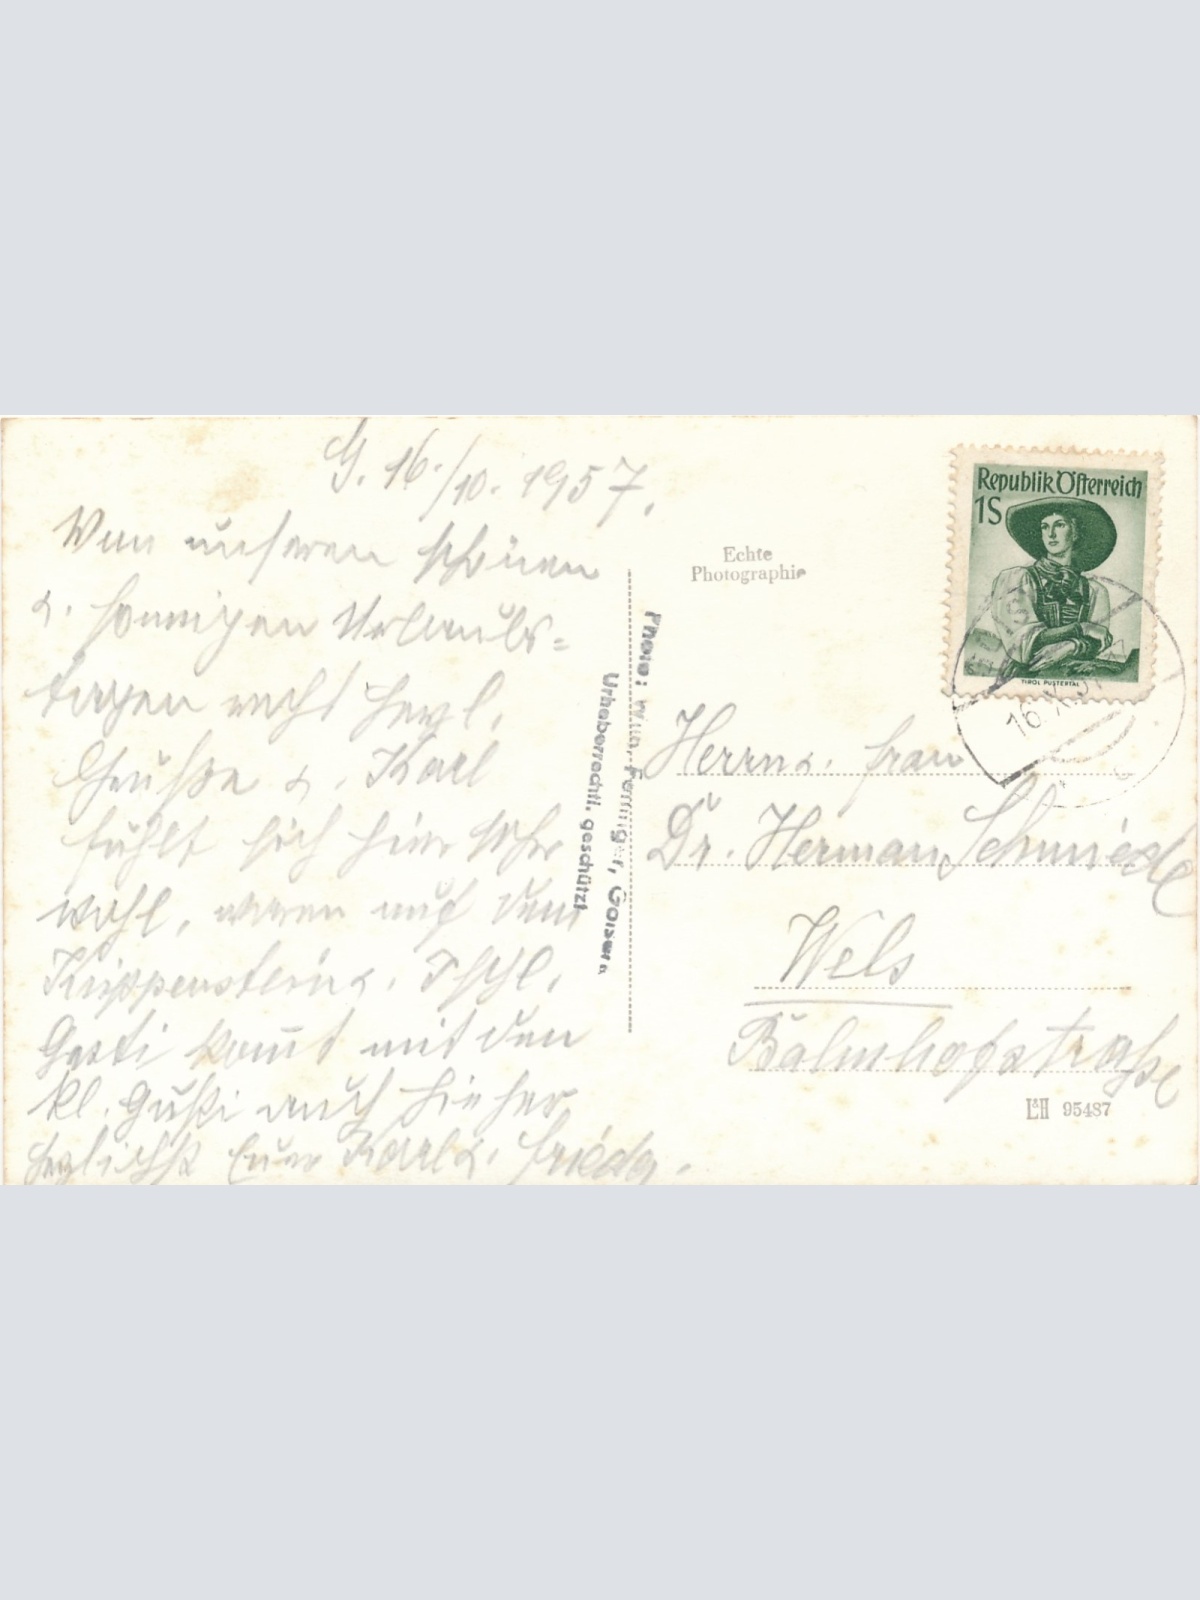 G. 16./10. 1957.
Von unseren schönen
u. sonnigen Urlaubs-
tagen recht herzl.
Grüße u. Karl
fühlt sich hier sehr
wohl, waren auf dem
Krippenstein u. Ischl.
Gerti kommt mit den
kl. Gusti auch hieher
herzlichst Eure Karl u. Friedg.
Echte
Photographie
Photo:
Urheberrechtl. geschützt
Republik Österreich
1S
TIROL PUSTERTAL
16. X. 57
Herrn u. Frau
Dr. Herman Schmiedl
Wels
Bahnhofstraße
L&H 95487